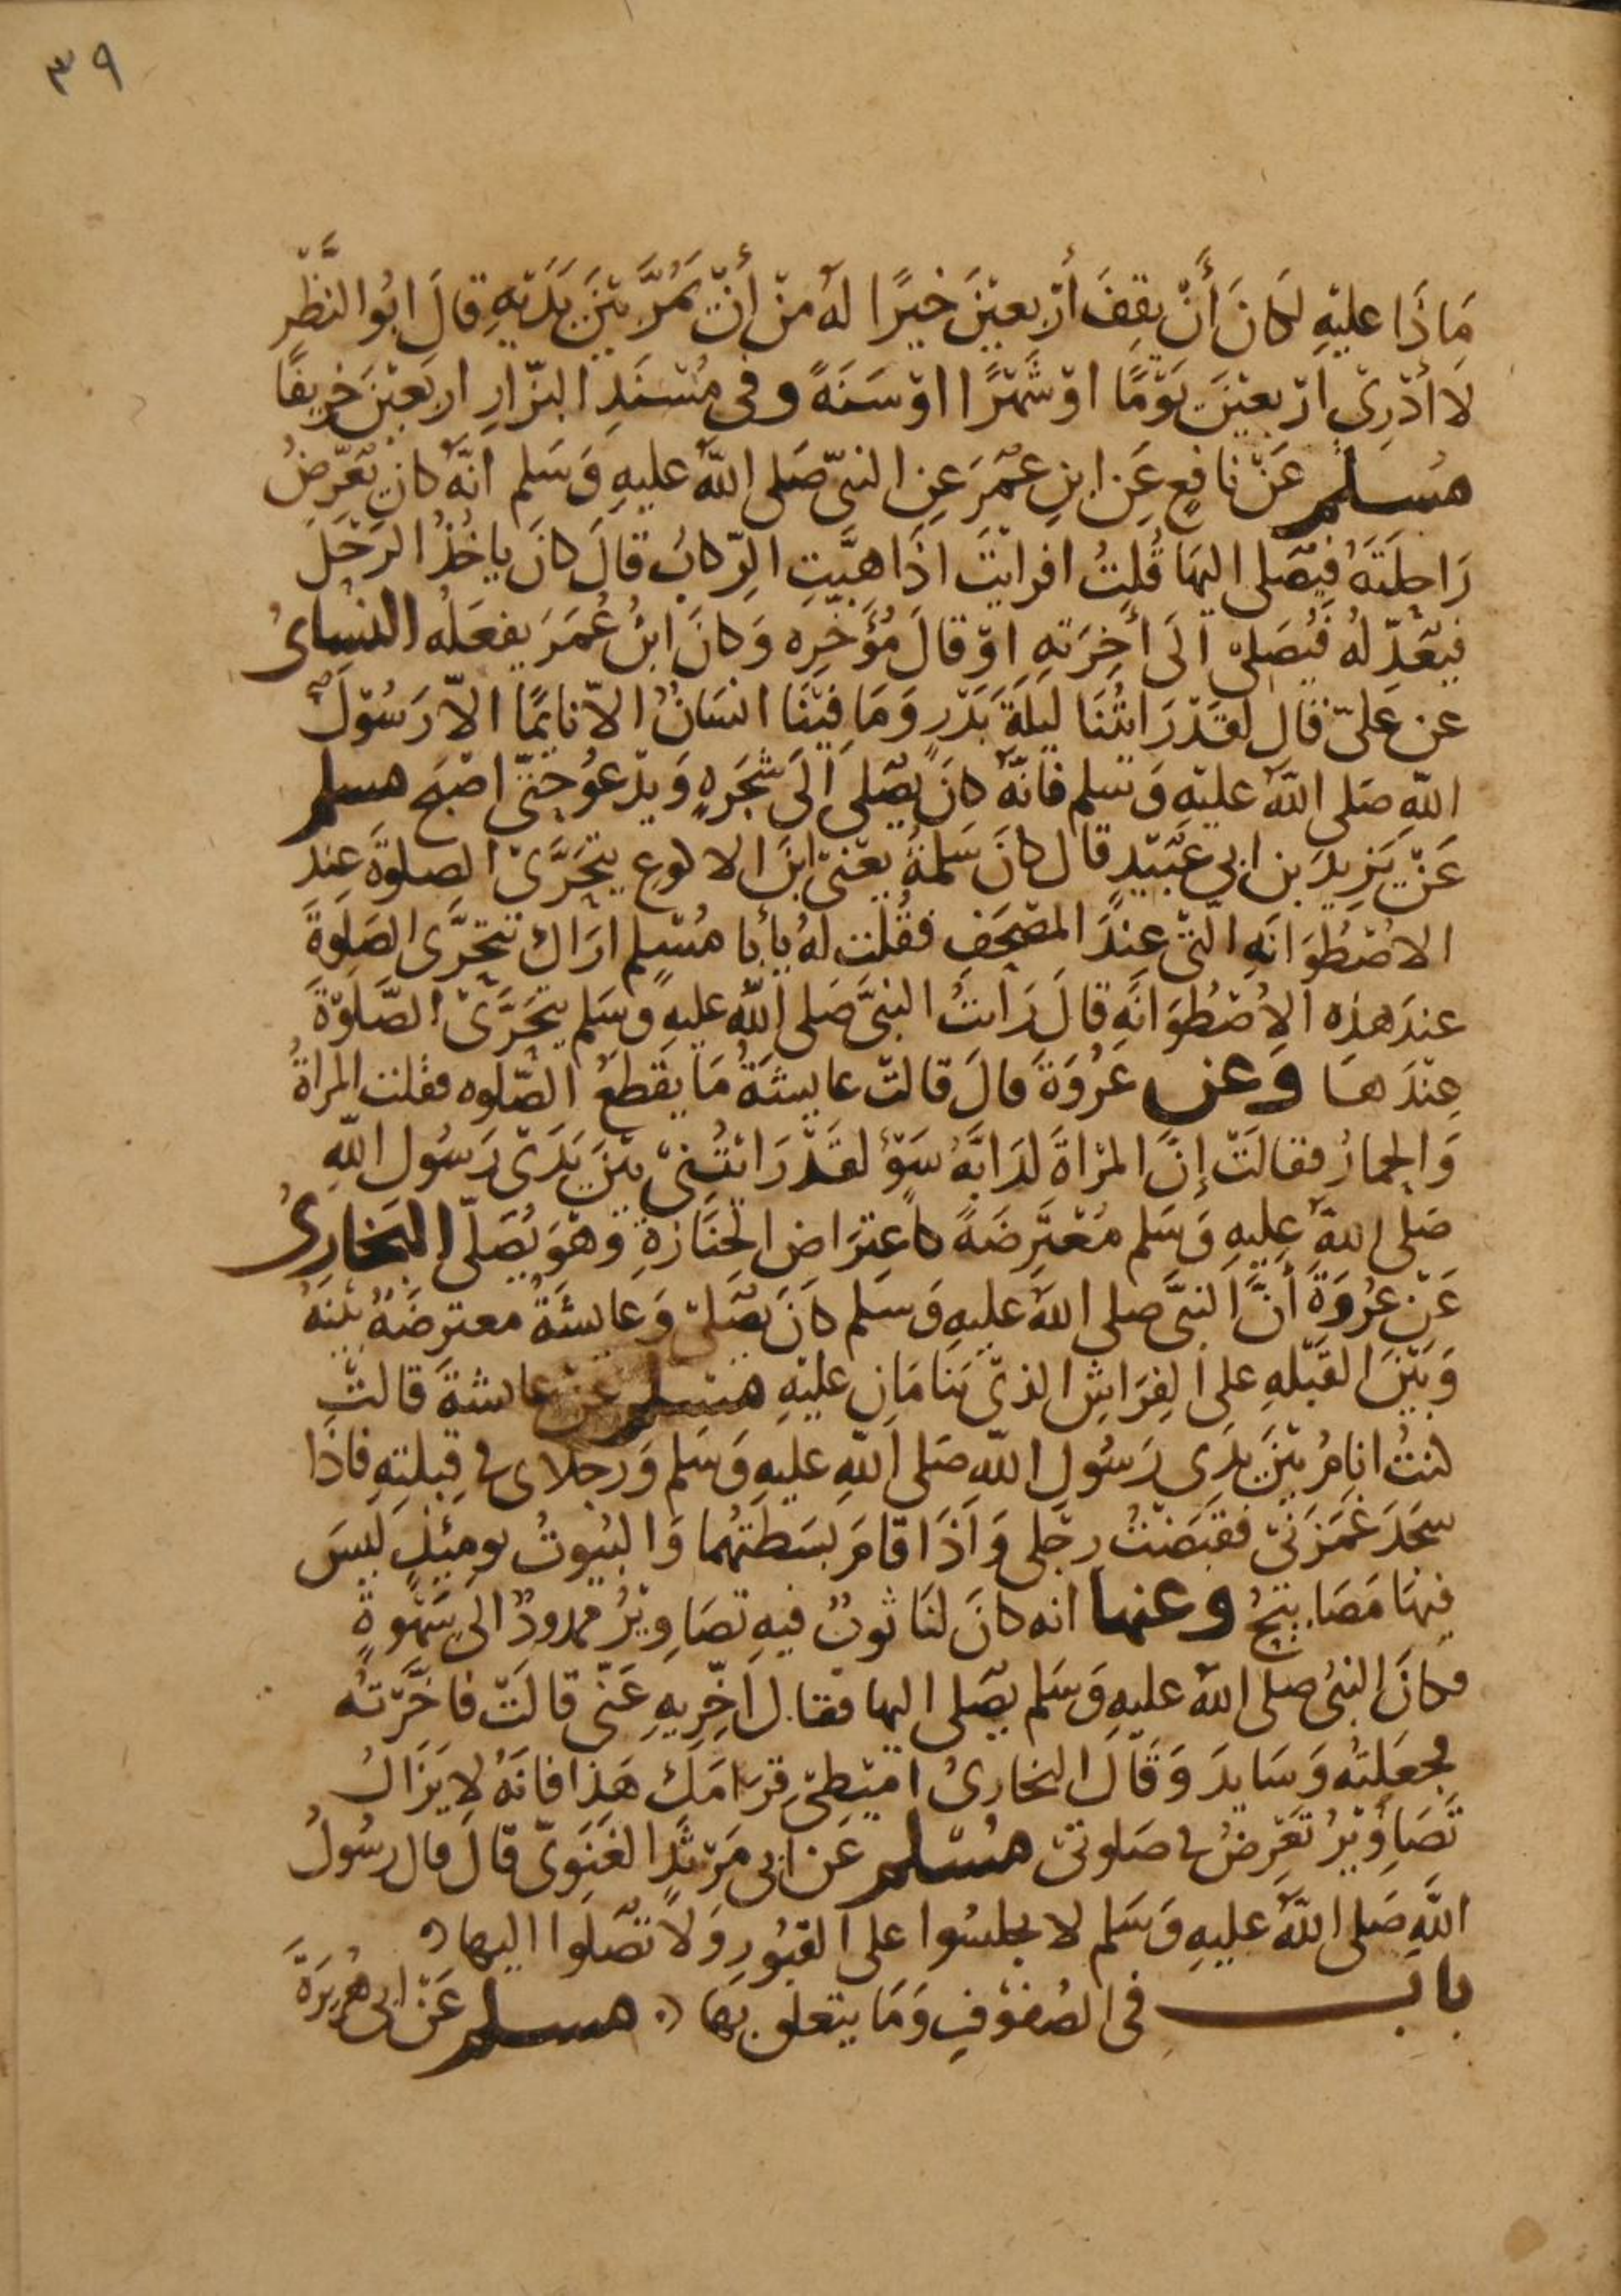 ٣٩
مَاذَا عليْهِ لَكانَ أَنْ يقِفَ أرْبعيْنَ خيرًا لهُ منْ أنْ يَمُرَّ بَيْنَ يَدَيْهِ قالَ ابُوا النَّظْرِ
لَا أدْرِيْ ارْبعيْنَ يَوْمًا اوْ شَهْرًا اوْ سَنَةً وفى مُسْنَدِ البزّارِ اربَعيْنَ خرِيفًا
مُسلم عَنْ نافعٍ عَن ابنِ عُمَرَ عنِ النبىّ صَلى اللهُ عليهِ وَسَلم انّهُ كانَ يُعَرِّضُ
رَاحلَتَهُ فيُصَلى اليهَا قُلتُ افرايْتَ اذَا هبَّتِ الرّكابُ قالَ كانَ ياخُذُ الرَّحْلَ
فيُعَدِّلهُ فيُصَلىْ الَى أخِرَتهِ اوْ قالَ مُؤَخّرِه وَكانَ ابنُ عُمَرَ يفعَلُه النسَائ
عن عَلىّ قال لقَدْ رَايتُنَا ليلَةَ بَدْرٍ وَمَا فيْنَا انسَانٌ الاّ نايمًا الاّ رَسُوْلَ
اللهِ صَلى اللهُ عليْهِ وَسلم فانّهُ كانَ يُصَلى الَى شجَرَهٍ وَيدْعوُ حتّى اصْبَح مسلم
عَنْ يَزِيدَ بن ابي عُبَيْدٍ قال كانَ سَلمَةُ يعْنى ابنَ الاكوعِ يتحَرَّىْ الصلوةَ عندَ
الاصْطُوَانَهِ التىْ عندَ المصْحَفِ فقُلت لهُ يا أبا مُسْلِمٍ ارَاكَ تتحَرَّى الصَلوةَ
عندَ هذه الاصْطُوَانَهِ قالَ رَايتُ النبىَّ صَلى اللهُ عليهِ وسَلم يتحَرَّىْ الصَّلَوْةَ
عِنْدَهَا وعن عُرْوَةَ قالَ قالتْ عايشَةُ مَا يَقطَعُ الصّلوه فقلت المراةُ
وَالحِمارُ فقالَتْ إنَّ المرْاةَ لدَابَّهُ سَوْءٍ لقَدْ رَايْتُنِىْ بَيْنَ يَدَىْ رَسُولِ اللهِ
صَلى اللهُ عليهِ وَسَلم مُعْتَرِضَةً كاعتِرَاضِ الجَنَازَةِ وَهوَ يُصَلّى البخارىُ
عَنْ عُرْوَةَ أنَّ النبىَّ صلى اللهُ عليهِ وَسَلم كانَ يُصَلىْ وَعَايشَةُ معترضَةٌ بَيْنَهُ
وَبَيْنَ القبْلَهِ على الفِرَاشِ الذىْ يَنَامَانِ عليْهِ مسلم عنْ عايشةَ قالتْ
كنتُ انامُ بَيْنَ يدَىْ رَسُولِ اللهِ صَلى اللهِ عليهِ وَسَلم وَرجلاى فى قِبلتهِ فاذَا
سَجَدَ غمَزنىْ فقبَضْتُ رجلِى وَاذَا قامَ بسَطتُهُما وَالبُيُوتُ يومئِذٍ ليسَ
فيْهَا مَصَابيْحُ وعنها انه كانَ لنَا ثوبٌ فيهِ تصَاوِيْرُ ممدودٌ الى سَهْوَةٍ
فكانَ النبىُ صلى اللهُ عليهِ وَسَلم يصَلى اليها فقال اَخّرِيهِ عَنّى قالَتْ فاخَّرْتُه
فجعَلتُه وَسَايدَ وَقَالَ البخارىُ امِيْطِىْ قرَامَكِ هَذا فانهُ لا يَزَالُ
تَصَاوِيْرُ تَعْرِضُ فى صَلوتىْ مُسْلم عَن ابى مَرْثَدٍ الغَنَوِىّ قالَ قال رسُولُ
اللهِ صَلى اللهُ عليهِ وَسَلم لا تجلسُوا على القبُورِ وَلاَ تصَلوا اليها
باب فى الصُفوْفِ وَمَا يتعلق بها مسلم عَنْ ابى هُرَيرَةَ